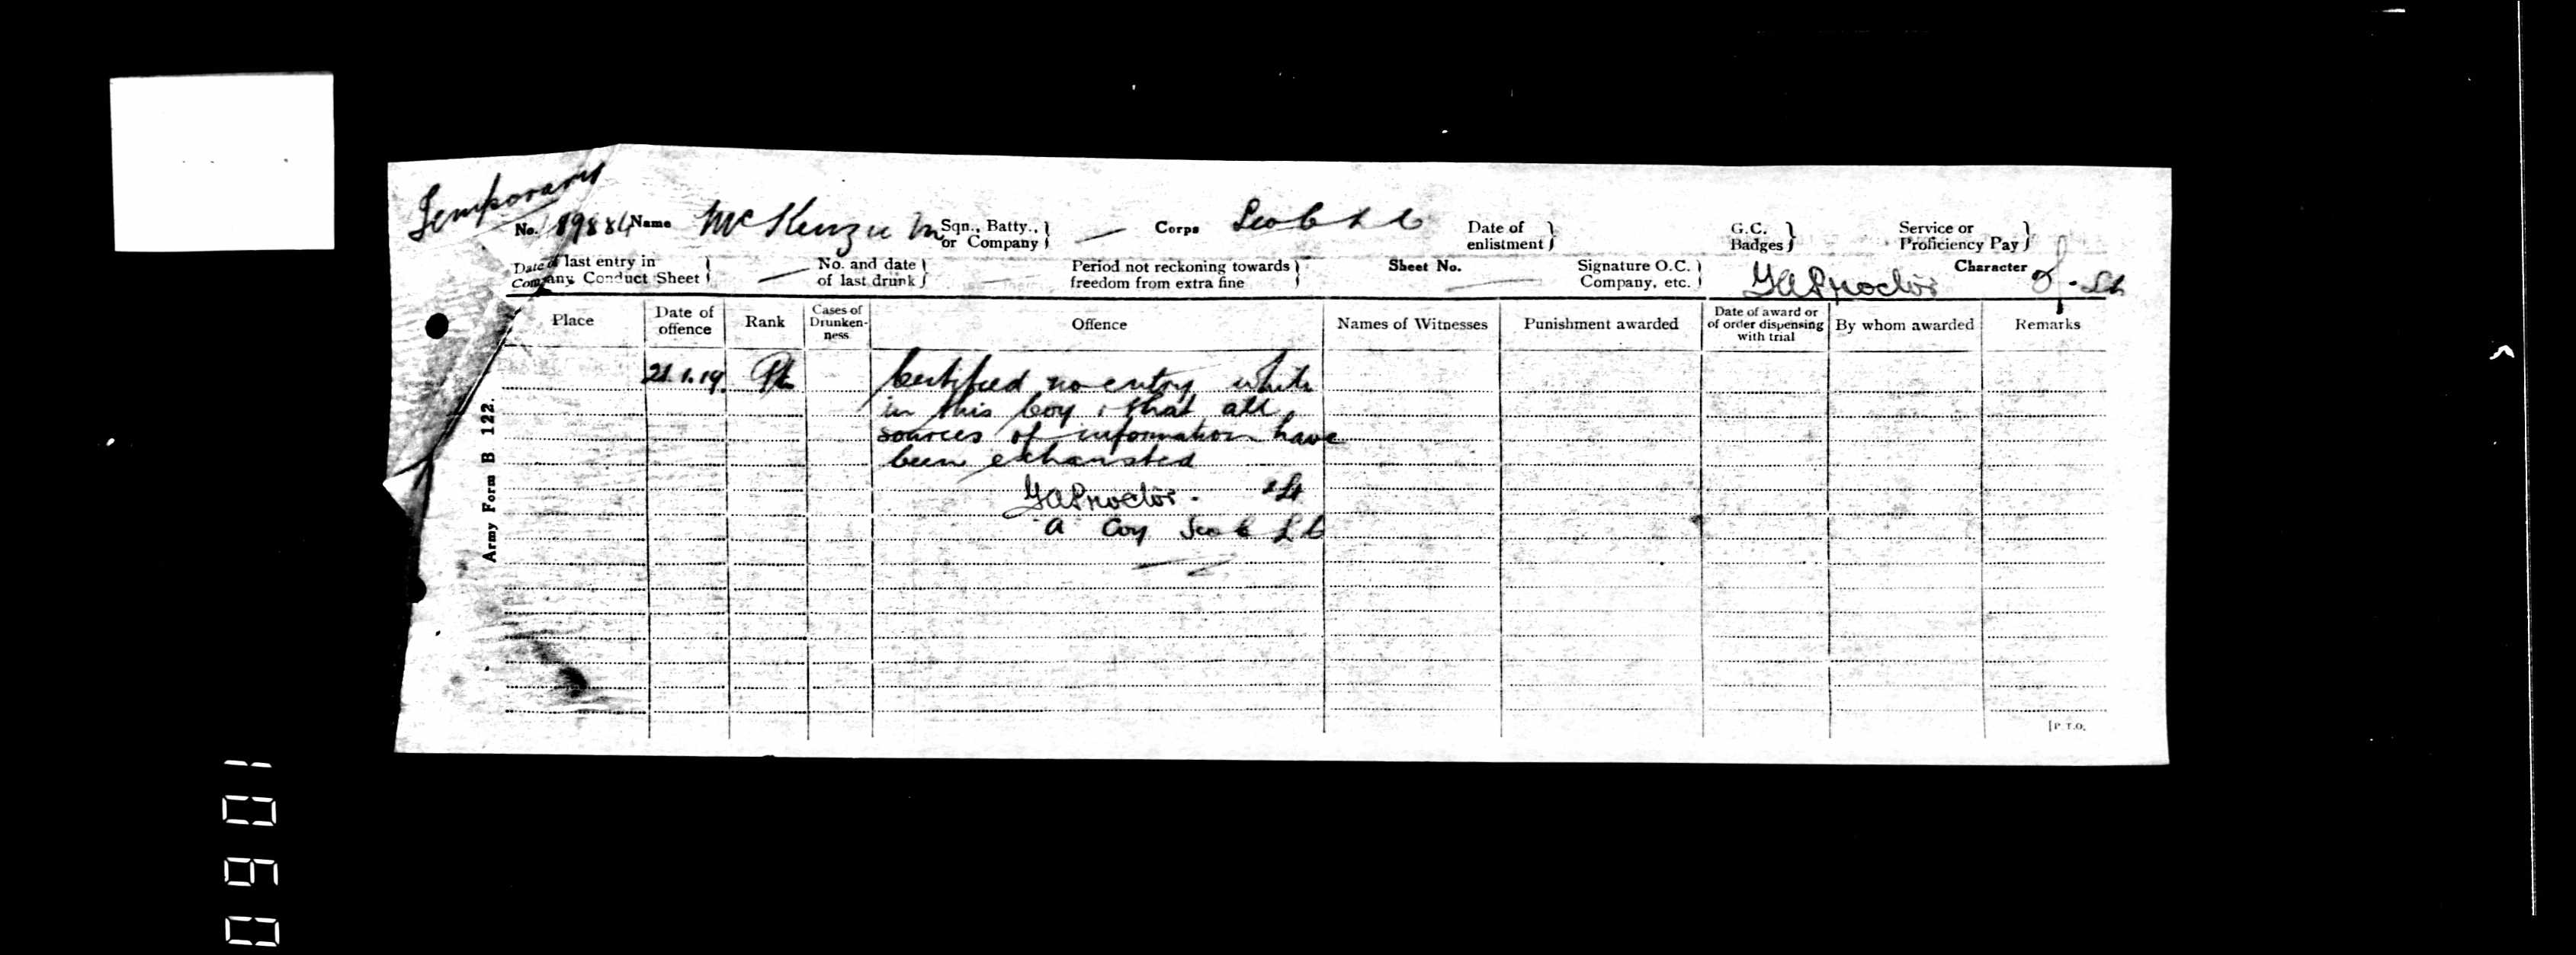 Temporary
No. 89884 Name McKenzie M Sqn., Batty., or Company } — Corps Sco C L C Date of enlistment } G.C. Badges } Service or Proficiency Pay }
Date of last entry in Company Conduct Sheet } — No. and date of last drunk } — Period not reckoning towards freedom from extra fine } Sheet No. — Signature O.C. Company, etc. } GAProctor Character Lt
Place Date of offence Rank Cases of Drunkenness Offence Names of Witnesses Punishment awarded Date of award or of order dispensing with trial By whom awarded Remarks
21.1.19. Pte Certified no entry while
in this Coy, that all
sources of information have
been exhausted
GAProctor. Lt
A Coy Sco C L C
Army Form B 122.
[P.T.O.
0901